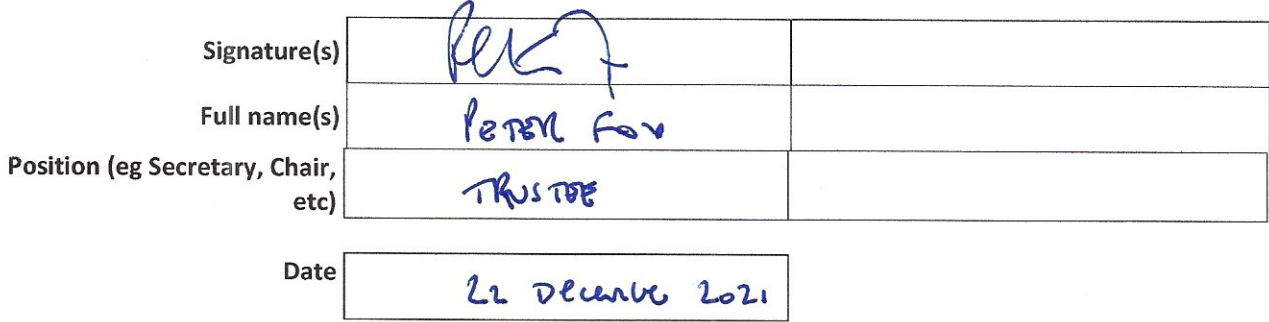 Signature(s)
Full name(s) PETER FOX
Position (eg Secretary, Chair,
etc) TRUSTEE
Date 22 December 2021